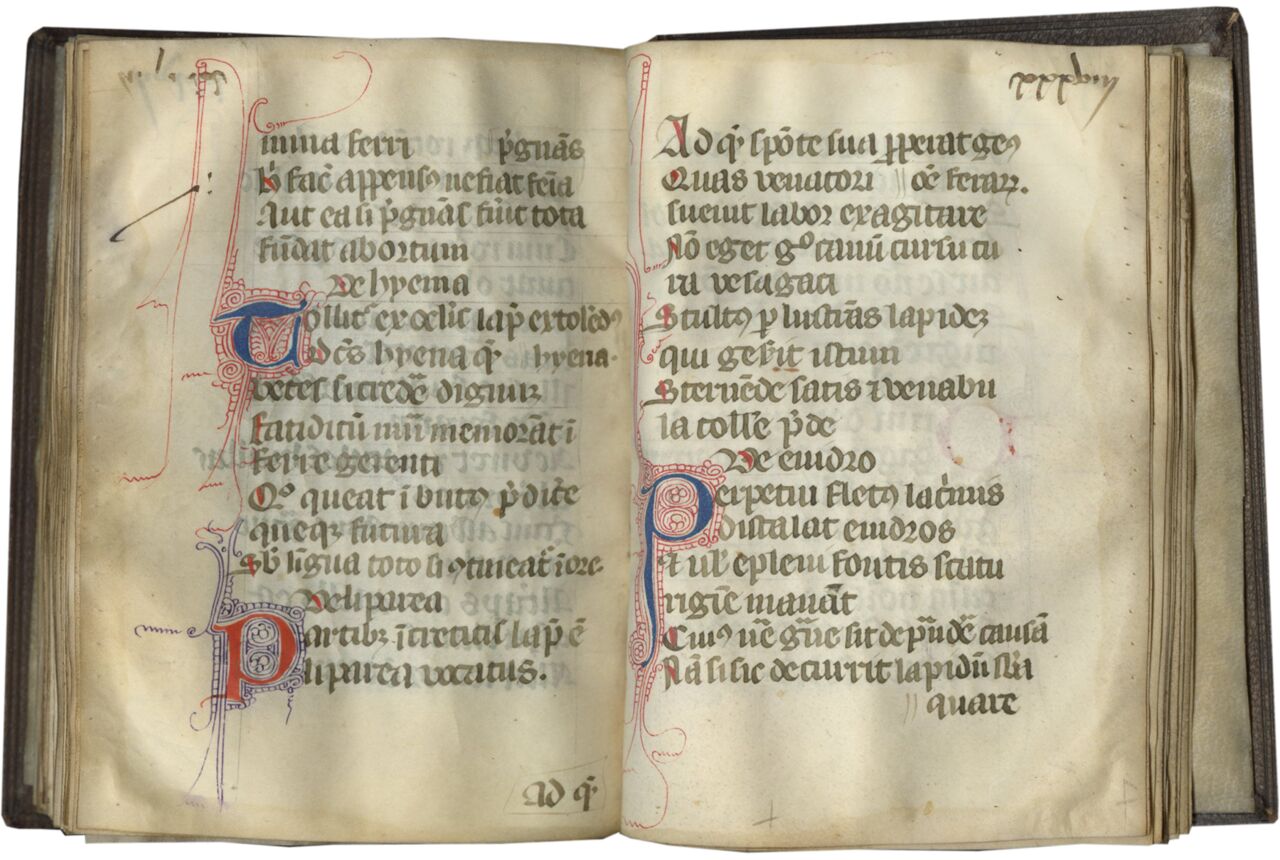 mina ferri p̄gnãs
ħ fac̃ appensꝰ ne fiat fem̃a
Aut ea si p̄gnãs fũit tota
fũdat abortum
De hyema
Tollit᷑ ex oclis lap̃ extolẽdꝰ
dc̃s hyena q᷑ hyena.
vetes si credẽ dignuꝫ
fatiditũ mũ memorãt ĩ
ferre gerenti
Qꝰ queat ĩ butꝰ p̄dic̃e
queqꝫ futura
Sb̃ lĩgua toto si ꝯtineat᷑ ĩ ore.
De liparea
Partibꝫ ĩ cretitis lap̃ ẽ
liparea vocatus.
Ad q᷑
xxxviij
Ad q᷑ spõte sua ꝓperat genꝰ
Quas venatori oẽ ferarꝝ.
suevit labor exagitare
Nõ eget gͦ canũ cursu cu
ra ve sagaci
Stultꝰ ꝑ lustrãs lapidez
qui gerit istum
Sternẽde satis ⁊ venabu
la tolle p̄de
De enidro
Perpetui fletꝰ lac̃mis
distalat enidros
Et ul᷑ e pleni fontis scatu
rigĩe manãt
Cuiꝰ nẽ gr̃ue sit deprẽdẽ causã
Nã si sic decurrit lapidũ sb̃a
quare